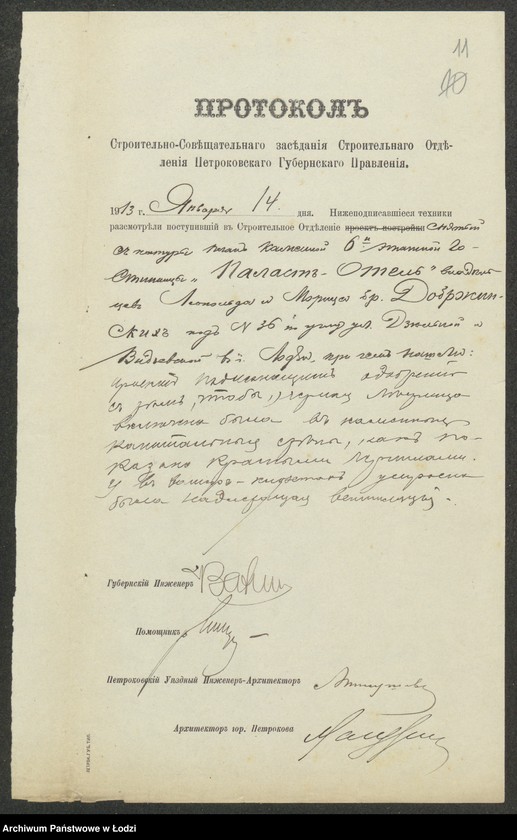 11
10
ПРОТОКОЛЪ
Строительно-Совѣщательнаго засѣданія Строительнаго Отдѣ-
ленія Петроковскаго Губернскаго Правленія.
1913 г. Января 14 дня. Нижеподписавшіеся техники
разсмотрѣли поступившій въ Строительное Отдѣленіе проектъ постройки снятый
съ натуры планъ каменной 6и этажной Го-
стинницы „Паластъ-Отель" владѣль
цевъ Леопольда и Морица бр. Добржин-
скихъ подъ N 36 по углу ул. Дзѣльной и
Видзевской въ г. Лодзи, при чемъ нашли:
проектъ подлежащимъ одобренію
съ тѣмъ, чтобы, 1)
была въ каменныя
капитальныя стѣны, какъ по-
казано красными линіями.
и въ устроена
была надлежащая вентиляція.
Губернскій Инженеръ
Помощникъ
Петроковскій Уѣздный Инженеръ-Архитекторъ
Архитекторъ гор. Петрокова
Archiwum Państwowe w Łodzi